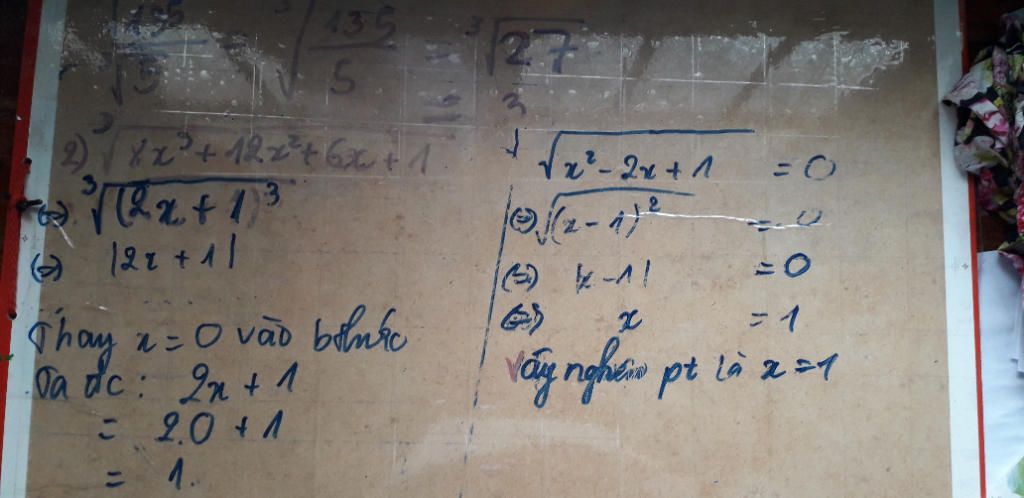 ∛135/∛5 = ∛(135/5) = ∛27
= 3
2) ∛(8x³ + 12x² + 6x + 1)
(=) ∛((2x + 1)³)
(=) |2x + 1|
Thay x = 0 vào bthức
Ta đc: 2x + 1
= 2.0 + 1
= 1.
√(x² - 2x + 1) = 0
(=) √((x - 1)²) = 0
(=) |x - 1| = 0
(=) x = 1
Vậy nghiệm pt là x = 1